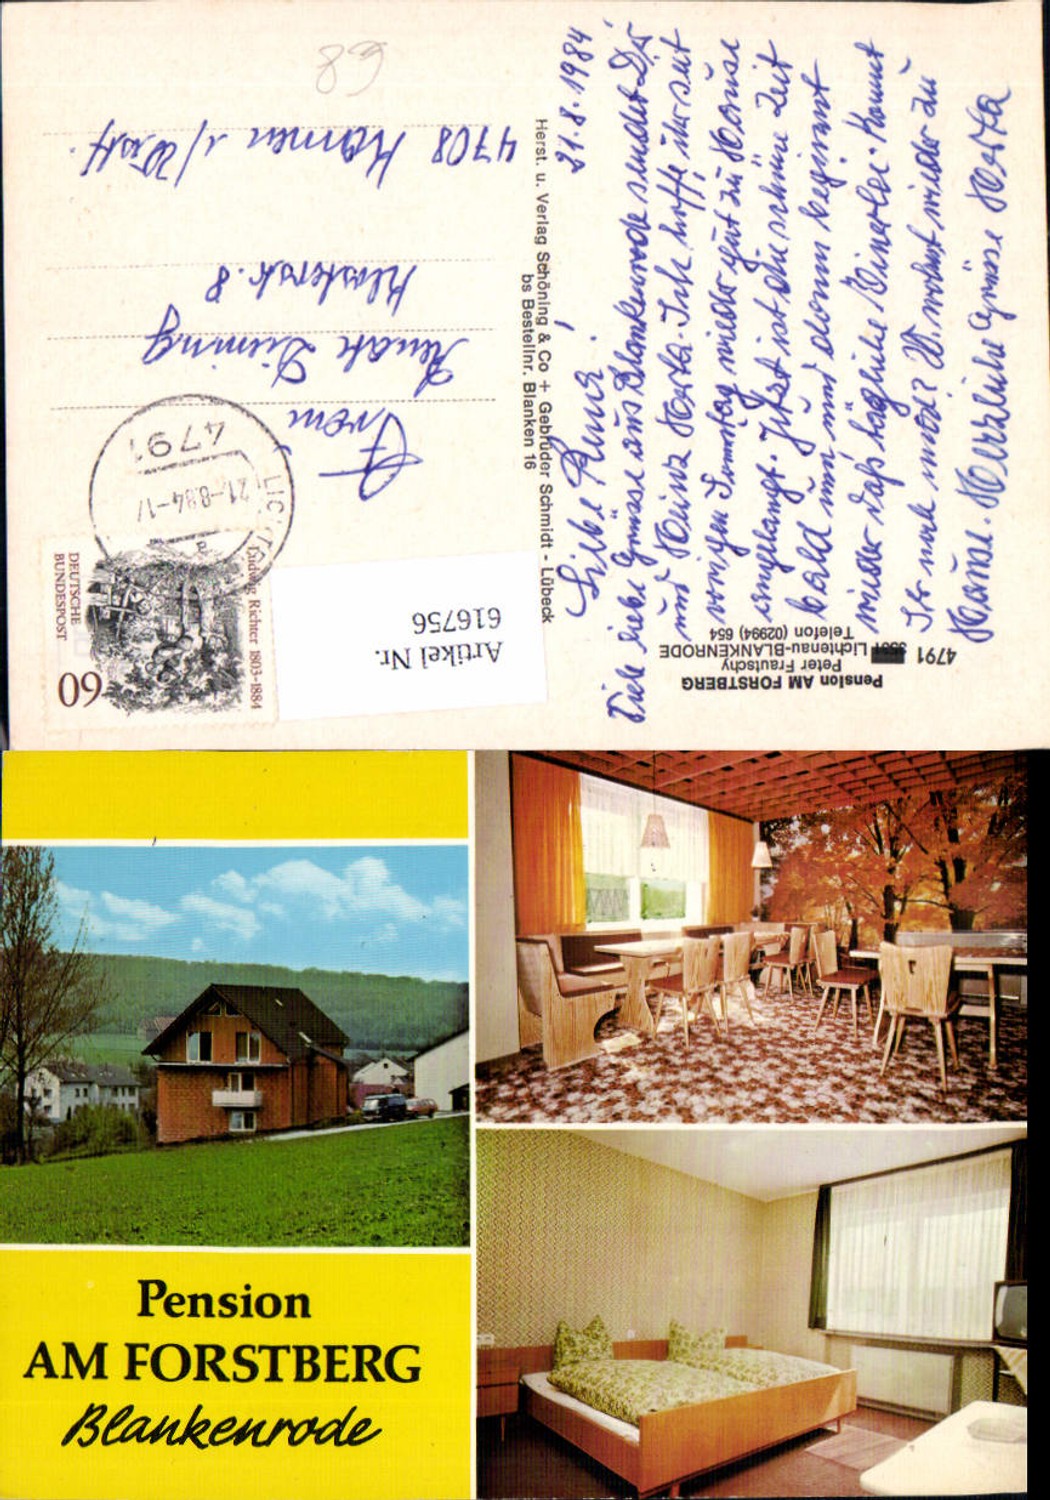 21.8.1984
Liebe Renate!
Viele liebe Grüsse aus Blankenrode sendet Dir
und Heinz Herta. Ich hoffe, ihr seit
vorigen Sonntag wieder gut zu Hause
angelangt. Jetzt ist die schöne Zeit
bald um und dann beginnt
wieder das tägliche Einerlei. Kommt
Ihr noch mal?
wieder zu
Hause. Herzliche Grüsse Herta
Herst. u. Verlag Schöning & Co + Gebrüder Schmidt - Lübeck
bs Bestellnr. Blanken 16
Pension AM FORSTBERG
Peter Frautschy
4791 Lichtenau-BLANKENRODE
Telefon (02994) 654
DEUTSCHE
BUNDESPOST
60
Ludwig Richter 1803-1884
4791
21.-8.84-17
a
LIC
Frau
Renate
Klosterstr. 8
4708 Kamen i/Westf.
89
Artikel Nr.
616756
Pension
AM FORSTBERG
Blankenrode